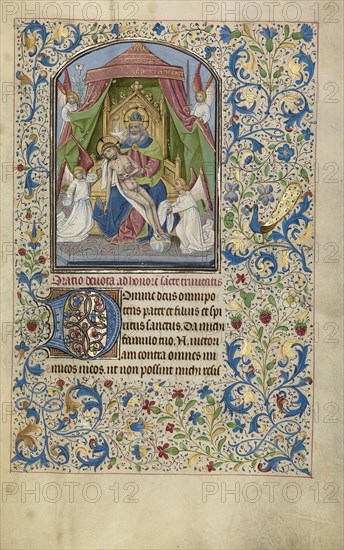 Oratio devota ad honorē sācte trinitatis
Domine deus omnipo
tens pater et filius et spi
ritus sanctus. Da michi
famulo tuo .N. victori
am contra omnes ini
micos meos. ut non possint michi resis
PHOTO12